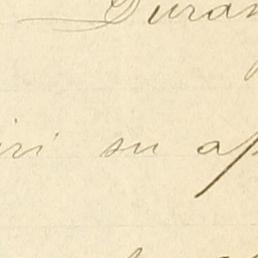 Duran
iri su ap